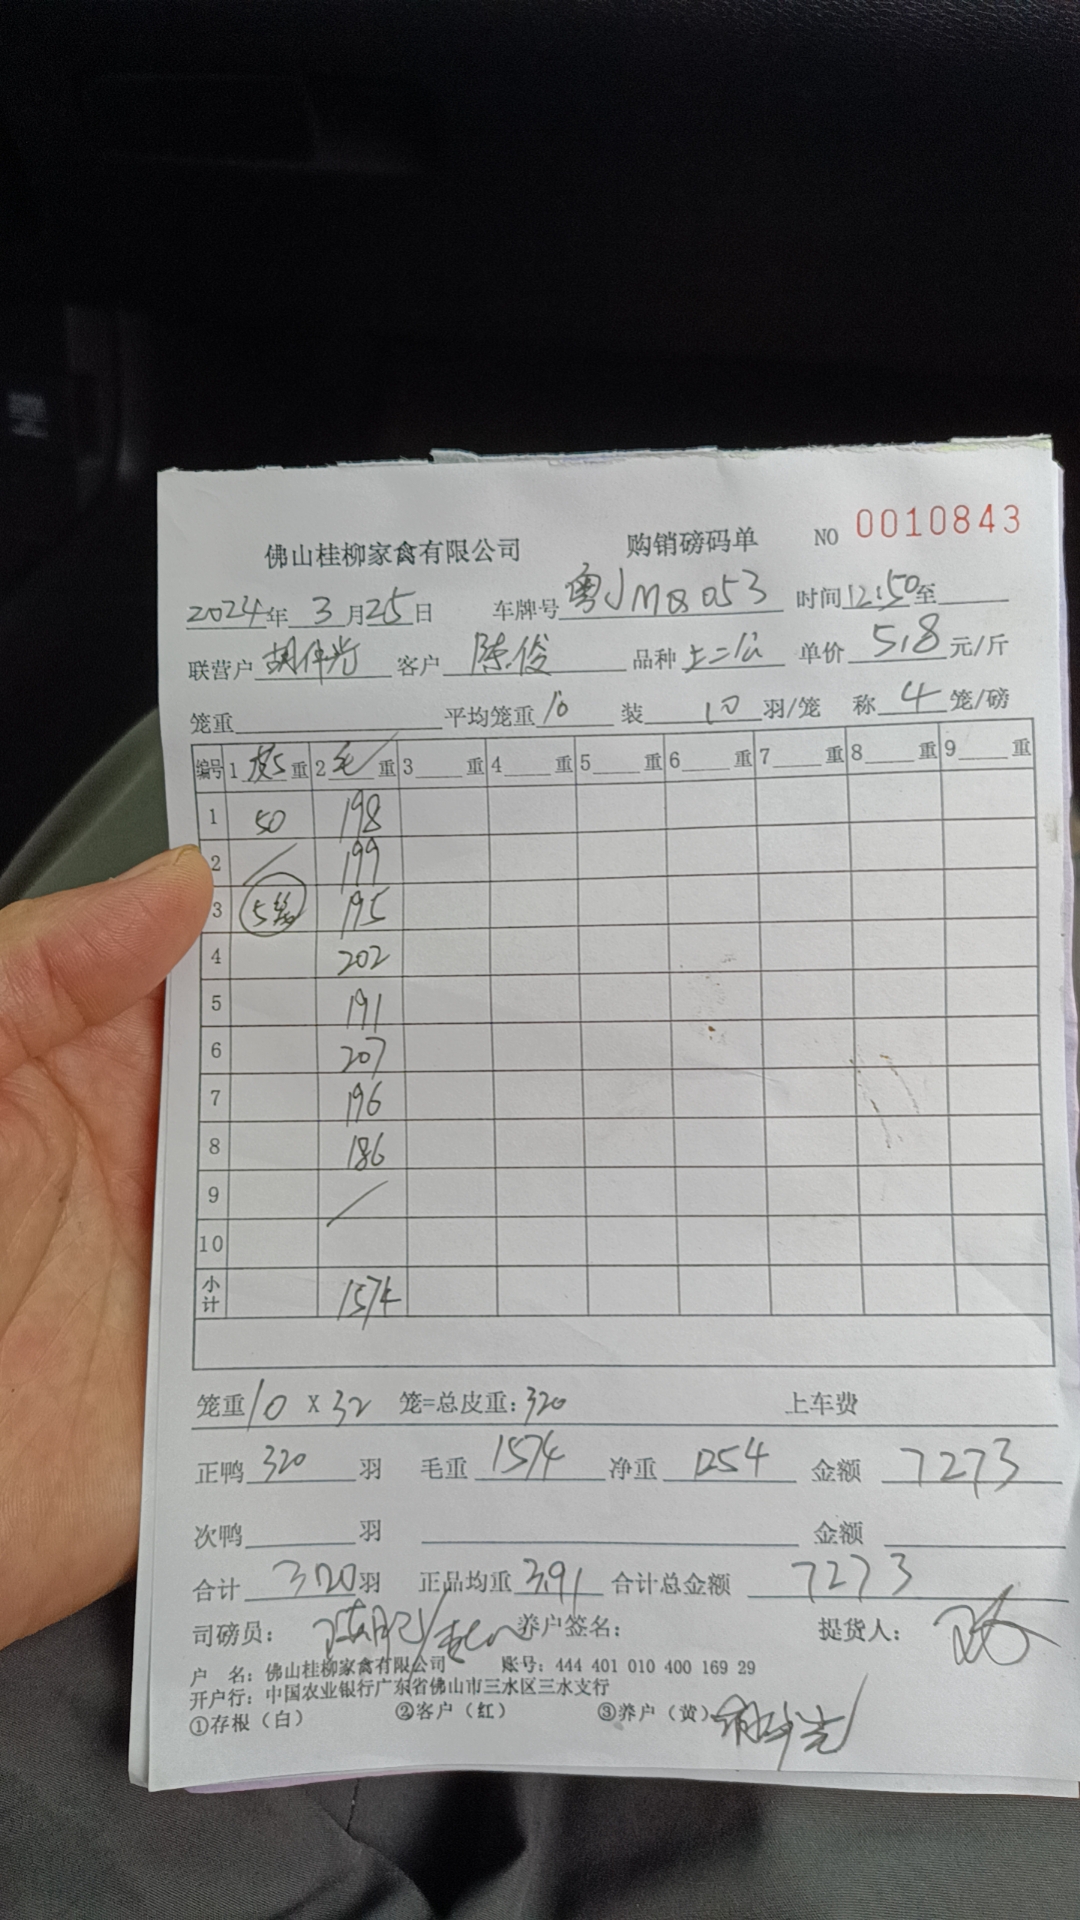 佛山桂柳家禽有限公司 购销磅码单 NO 0010843
2024年 3月25日 车牌号 粤JMQ053 时间12:50至
联营户胡伟光 客户 陈俊 品种 上二公 单价 5.8 元/斤
笼重 平均笼重10 装 10 羽/笼 称 4 笼/磅
编号 1 皮 重 2 毛 重 3 重 4 重 5 重 6 重 7 重 8 重 9 重
1 50 198
2 199
3 5笼 195
4 202
5 191
6 207
7 196
8 186
9
10
小计 1574
笼重10 X 32 笼=总皮重:320 上车费
正鸭 320 羽 毛重 1574 净重 1254 金额 7273
次鸭 羽 金额
合计 320羽 正品均重3.91 合计总金额 7273
司磅员: 养户签名: 提货人:
户 名: 佛山桂柳家禽有限公司 账号: 444 401 010 400 169 29
开户行: 中国农业银行广东省佛山市三水区三水支行
①存根(白) ②客户(红) ③养户(黄)